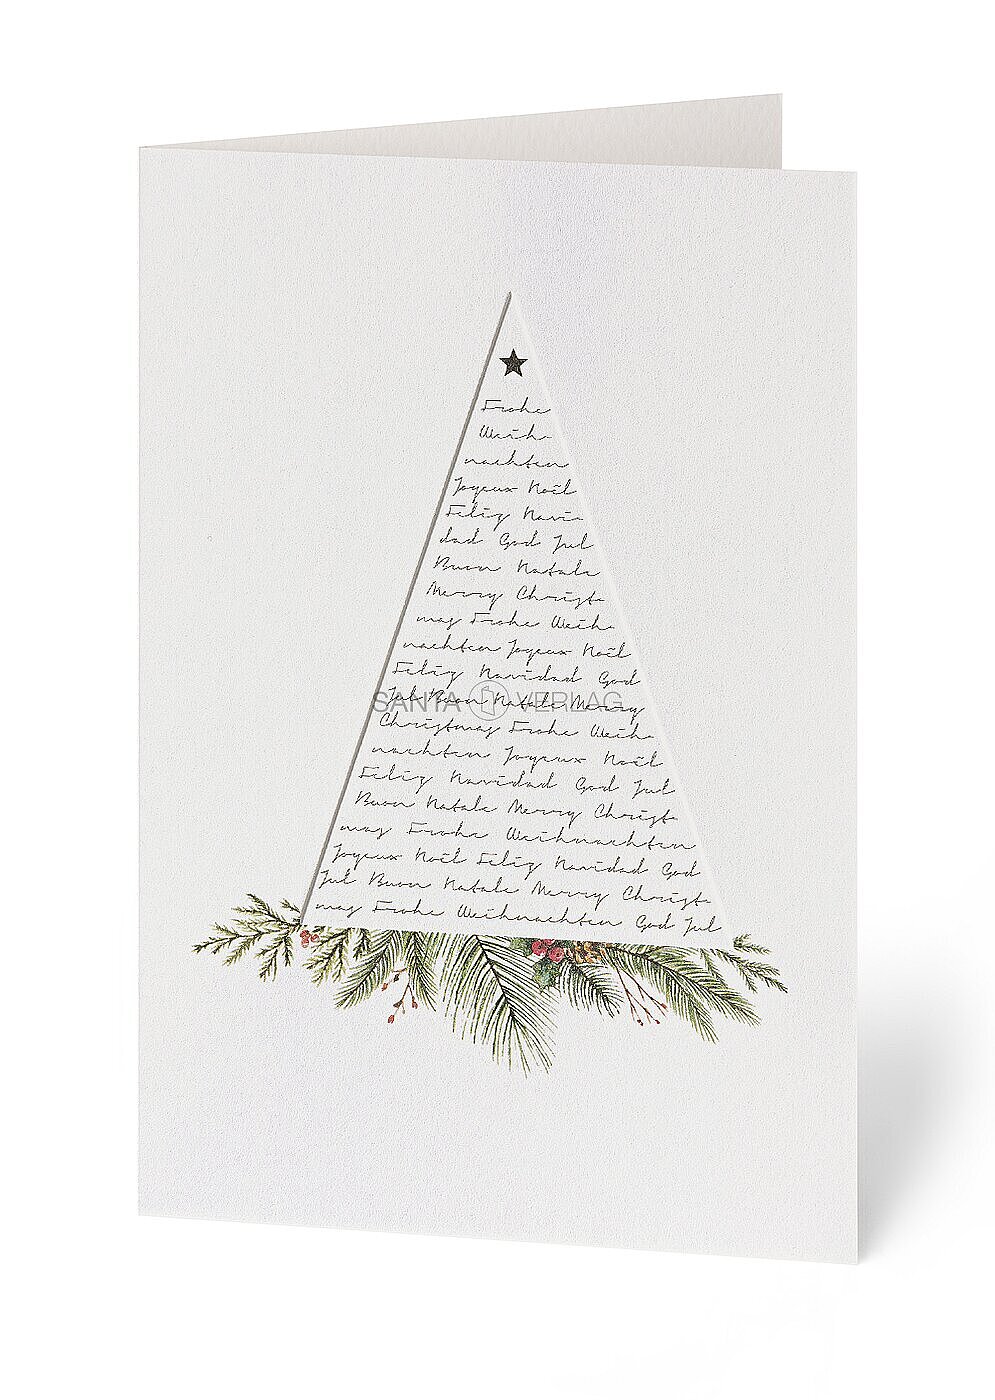 Frohe
Weih-
nachten
Joyeux Noël
Feliz Navi-
dad God Jul
Buon Natale
Merry Christ-
mas Frohe Weih-
nachten Joyeux Noël
Feliz Navidad God
Jul Buon Natale Merry
SANTA VERLAG
Christmas Frohe Weih-
nachten Joyeux Noël
Feliz Navidad God Jul
Buon Natale Merry Christ-
mas Frohe Weihnachten
Joyeux Noël Feliz Navidad God
Jul Buon Natale Merry Christ-
mas Frohe Weihnachten God Jul